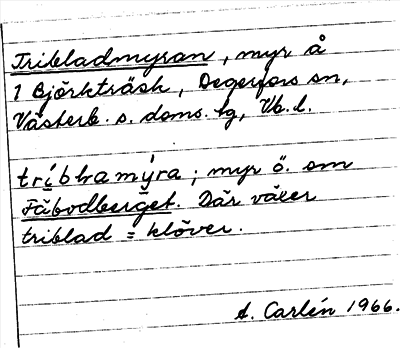 Tribladmyran, myr å
1 Björkträsk, Degerfors sn,
Västerb. s. doms. tg, Vb. l.
tríbḷamýra; myr ö. om
Fäbodberget. Där växer
triblad = klöver.
A. Carlén 1966.